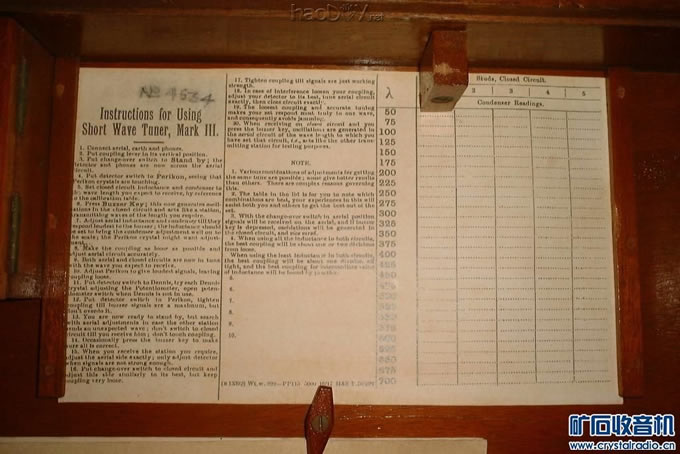 haoDX.net
No 4634
Instructions for Using
Short Wave Tuner, Mark III.
1. Connect aerial, earth and phones.
2. Put coupling lever in its vertical position.
3. Put change-over switch to Stand by; the
detector and phones are now across the aerial
circuit.
4. Put detector switch to Perikon, seeing that
Perikon crystals are touching.
5. Set closed circuit inductance and condenser to
the wave length you expect to receive, by reference
to the calibration table.
6. Press Buzzer Key; this now generates oscillations
in the closed circuit and acts like a station,
transmitting waves of the length you require.
7. Adjust aerial inductance and condenser till they
respond loudest to the buzzer; the inductance should
be set to bring the condenser adjustment well on to
the scale; the Perikon crystal might want adjustment.
8. Make the coupling as loose as possible and
adjust aerial circuit accurately.
9. Both aerial and closed circuits are now in tune
with the wave you expect to receive.
10. Adjust Perikon to give loudest signals, leaving
coupling loose.
11. Put detector switch to Dennis, try each Dennis
crystal adjusting the Potentiometer, open potentiometer
switch when Dennis is not in use.
12. Put detector switch to Perikon, tighten
coupling till buzzer signals are a maximum, but
don't exceed it.
13. You are now ready to stand by, but search
with aerial adjustments in case the other station
sends an unexpected wave; don't switch to closed
circuit till you receive him; don't touch coupling.
14. Occasionally press the buzzer key to make
sure all is correct.
15. When you receive the station you require,
adjust the aerial side exactly; only adjust detector
when signals are not strong enough.
16. Put change-over switch to closed circuit and
adjust this side similarly to its best, but keep
coupling very loose.
17. Tighten coupling till signals are just working
strength.
18. In case of interference loosen your coupling,
adjust your detector to its best, tune aerial circuit
exactly, then close circuit exactly.
19. The loosest coupling and accurate tuning
makes your set respond most truly to one wave,
and consequently avoids jamming.
20. When receiving on closed circuit and you
press the buzzer key, oscillations are generated in
the aerial circuit of the wave length to which you
have set that circuit, i.e., acts like the other transmitting
station for testing purposes.
NOTE.
1. Various combinations of adjustments for getting
the same tune are possible; some give better results
than others. There are complex reasons governing
this.
2. The table in the lid is for you to note which
combinations are best, your experience in this will
assist both you and others to get the best out of the
set.
3. With the change-over switch in aerial position
signals will be received on the aerial, and if buzzer
key is depressed, oscillations will be generated in
the closed circuit, and vice versâ.
4. When using all the inductance in both circuits,
the best coupling will be about one or two divisions
from loose.
When using the best inductance in both circuits,
the best coupling will be about one division off
tight, and the best coupling for intermediate value
of inductance will be found by practice.
5.
6.
7.
8.
9.
10.
λ
Studs, Closed Circuit.
2 3 4 5
Condenser Readings.
50
75
100
125
150
175
200
225
250
275
300
325
350
375
400
425
450
475
500
525
550
575
600
625
650
675
700
矿石收音机
www.crystalradio.cn